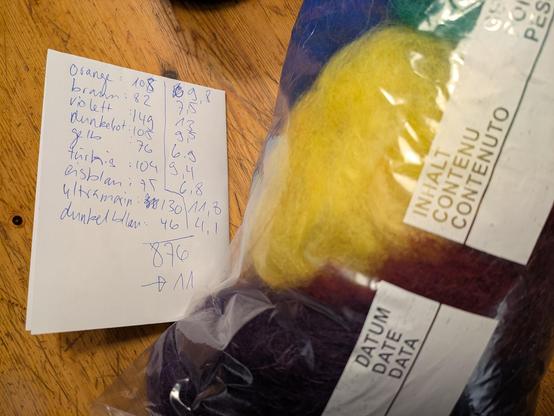 orange: 108 9,8
braun: 82 7,5
violett: 149 13
dunkelrot: 105 9,5
gelb 76 6.9
türkis: 104 9,4
eisblau: 75 6,8
ultramarin: 130 11,8
dunkelblau: 46 4,1
876
→ 11
POI
PES
INHALT
CONTENU
CONTENUTO
DATUM
DATE
DATA